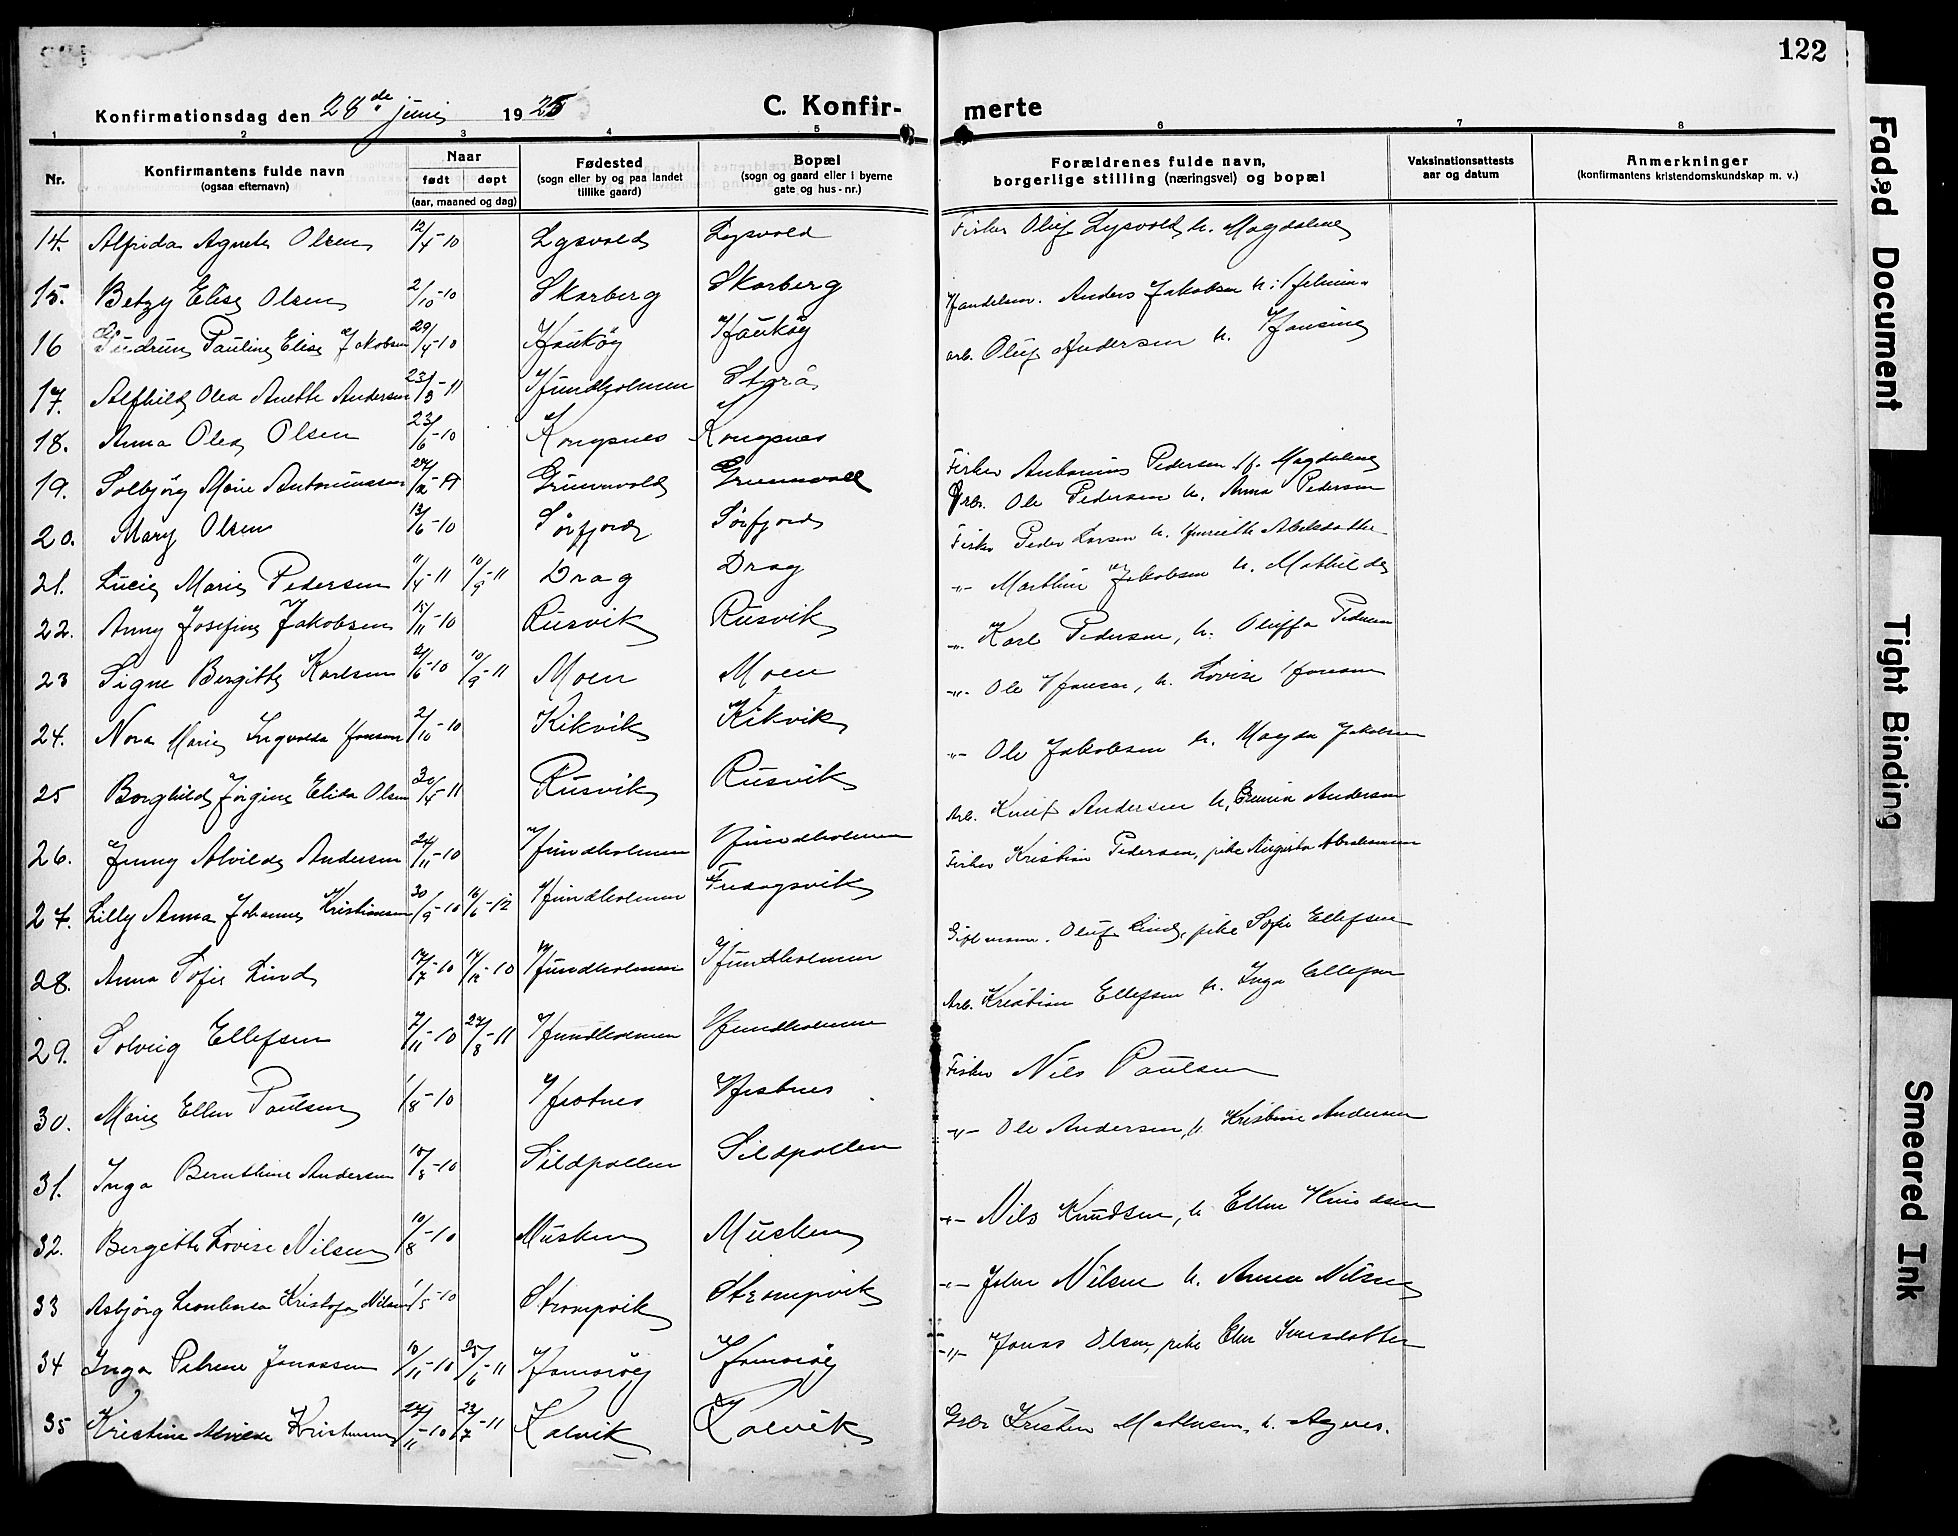 122
Konfirmationsdag den 28de juni 1925
C. Konfir- merte
1 2 3 4 5 6 7 8
Nr.
Konfirmantens fulde navn
(ogsaa efternavn)
Naar
født døpt
(aar, maaned og dag)
Fødested
(sogn eller by og paa landet
tillike gaard)
Bopæl
(sogn og gaard eller i byerne
gate og hus-nr.)
Forældrenes fulde navn,
borgerlige stilling (næringsvei) og bopæl
Vaksinationsattests
aar og datum
Anmerkninger
(konfirmantens kristendomskundskap m. v.)
14. Alfrida Agnete Olsen 12/4-10 Lysvold Lysvold Fisker Oluf Lysvold h. Magdalene
15. Betzy Elise Olsen 2/10-10 Skarberg Skarberg Anders Jakobsen h.
16 Gudrun Pauline Elise Jakobsen 29/4-10 Haukøy Haukøy arb. Oluf Andersen h. Hansine
17. Alfhild Olea Anette Andersen 23/3-11 Hundholmen Styrå
18. Anna Olea Olsen 23/6-10 Kongsnes Kongsnes
19. Solbjørg Marie Antoniussen Grunnvold Grunnvold Fisker Antonius Pedersen H. Magdalene
Arb. Ole Pedersen h. Anna Pedersen
20. Mary Olsen 13/6-10 Sørfjord Sørfjord Fisker Peder Larsen h.
21. Lucie Marie Pedersen 11/4-11 10/9-11 Drag Drag -"- Marthin Jakobsen h. Mathilde
22. Anny Josefine Jakobsen 15/11-10 Rusvik Rusvik -"- Karl Pedersen, h. Oluffa Pedersen
23 Signe Bergitte Karlsen 21/6-10 10/9-11 Moen Moen -"- Ole Hansen, h. Lovise Hansen
24. Nora Marie Ingvalda Hansen 2/10-10 Kikvik Kikvik -"- Ole Jakobsen h. Magda Jakobsen
25 Borghild Jørgine Elida Olsen 30/4-11 Rusvik Rusvik Arb. Andersen h. Andersen
26. Jenny Alvilde Andersen 24/11-10 Hundholmen Hundholmen Fisker Kristian Pedersen, pike Abrahamsen
27. Lilly Anna Johanne Kristiansen 30/9-10 16/6-12 Hundholmen Fredagsvik Oluf Lind, pike Sofie Ellefsen
28. Anna Sofie Lind 17/7-10 17/12-10 Hundholmen Hundholmen Arb. Kristian Ellefsen h. Inga Ellefsen
29. Solveig Ellefsen 7/11-10 27/8-11 Hundholmen Hundholmen Fisker Nils Paulsen
30. Marie Ellen Paulsen 1/8-10 -"- Ole Andersen, h. Kristine Andersen
31. Inga Bernthine Andersen 10/8-10 Sildpollen Sildpollen -"- Nils Knudsen, h Ellen Knudsen
32. Bergitte Lovise Nilsen 10/8-10 Musken Musken -"- John Nilsen h. Anna Nilsen
33 Asbjørg Kristofa Nilsen 1/5-10 Strompvik Strompvik -"- Jonas Olsen, pike Ellen
34 Inga Petrine Jonassen 10/11-10 25/6-11 Hamarøy Hamarøy
35 Kristine Alvilde Kristensen 27/11-10 23/7-11 Kalvik Kalvik Kristen Mathisen, h. Agnes.
Faded Document
Tight Binding
Smeared Ink